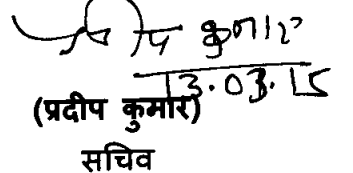 प्रदीप कुमार
13.03.15
(प्रदीप कुमार)
सचिव